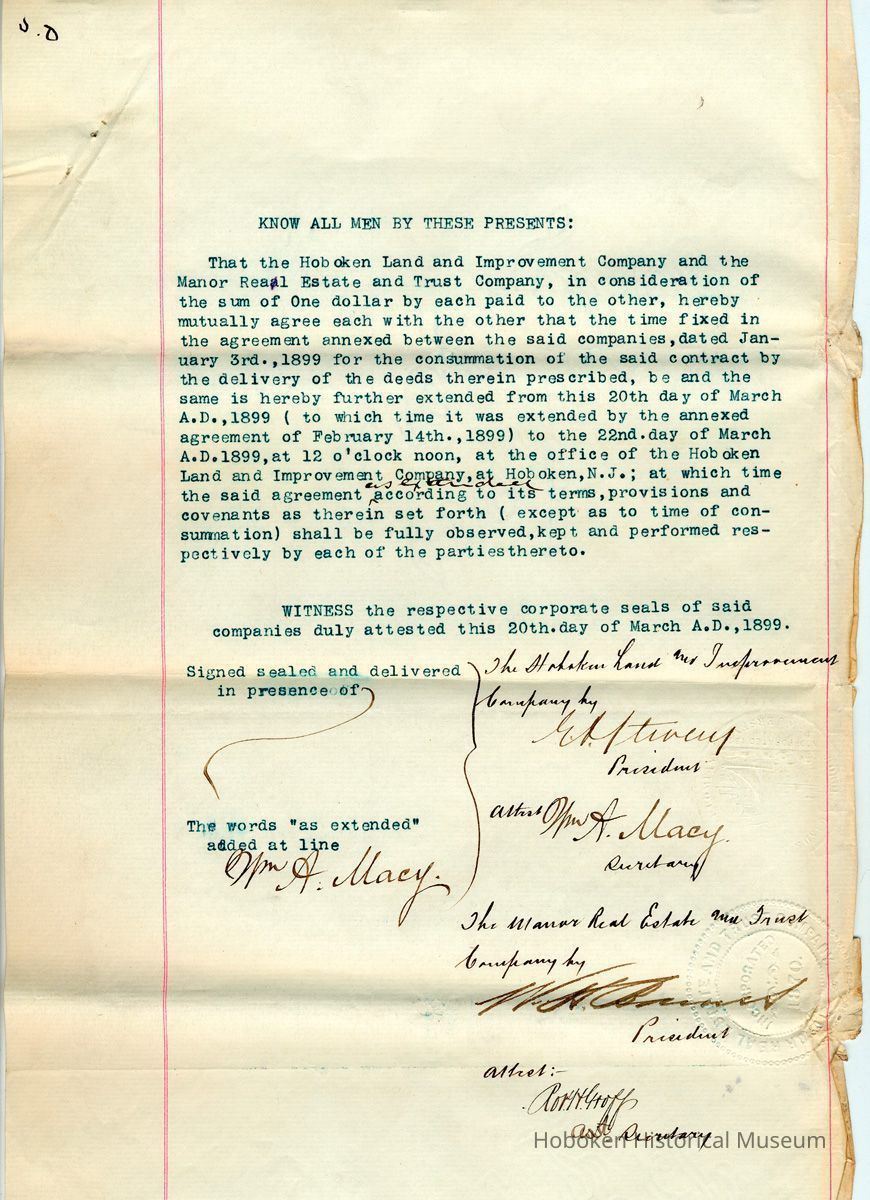 KNOW ALL MEN BY THESE PRESENTS:
That the Hoboken Land and Improvement Company and the
Manor Reaal Estate and Trust Company, in consideration of
the sum of One dollar by each paid to the other, hereby
mutually agree each with the other that the time fixed in
the agreement annexed between the said companies,dated Jan-
uary 3rd.,1899 for the consummation of the said contract by
the delivery of the deeds therein prescribed, be and the
same is hereby further extended from this 20th day of March
A.D.,1899 ( to which time it was extended by the annexed
agreement of February 14th.,1899) to the 22nd.day of March
A.D.1899,at 12 o'clock noon, at the office of the Hoboken
Land and Improvement Company,at Hoboken,N.J.; at which time
as extended
the said agreement according to its terms,provisions and
covenants as therein set forth ( except as to time of con-
summation) shall be fully observed,kept and performed res-
pectively by each of the partiesthereto.
WITNESS the respective corporate seals of said
companies duly attested this 20th.day of March A.D.,1899.
Signed sealed and delivered
in presence of
The Hoboken Land and Improvement
Company by
E.A. Stevens
President
Attest Wm A. Macy.
Secretary
The words "as extended"
added at line
Wm A. Macy.
The Manor Real Estate and Trust
Company by
President
Attest:-
Robt H Groff
Asst Secretary
Hoboken Historical Museum